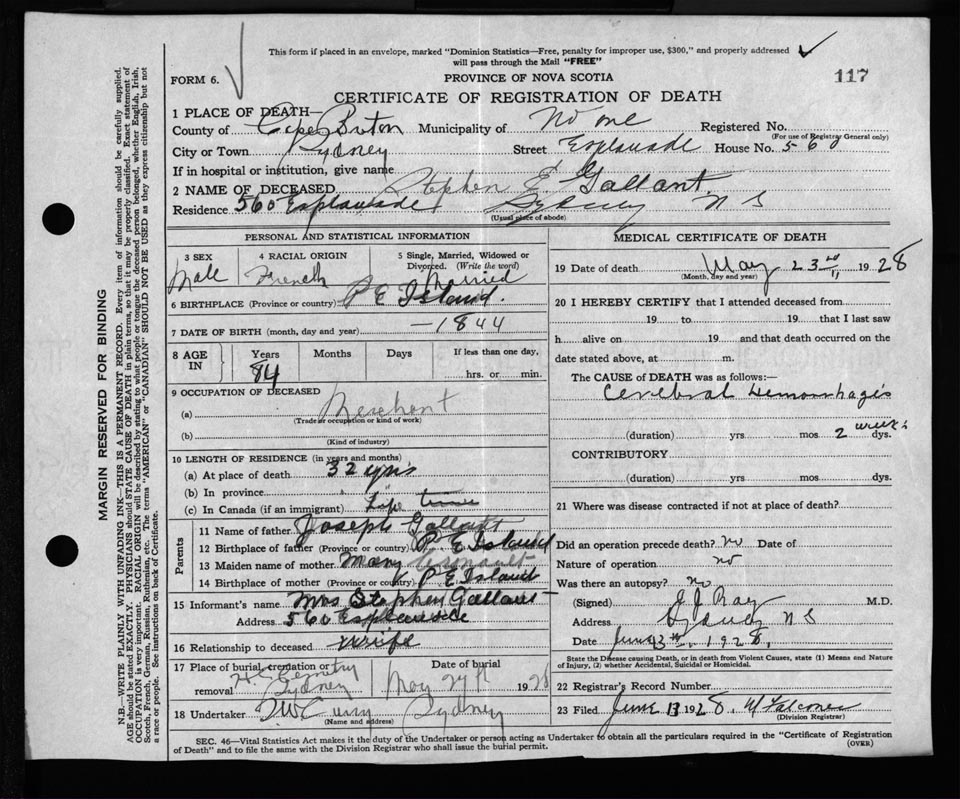 This form if placed in an envelope, marked "Dominion Statistics—Free, penalty for improper use, $300," and properly addressed
will pass through the Mail "FREE"
FORM 6. PROVINCE OF NOVA SCOTIA 117
CERTIFICATE OF REGISTRATION OF DEATH
1 PLACE OF DEATH—
County of Cape Breton Municipality of No one Registered No.
(For use of Registrar General only)
City or Town Sydney Street Esplanade House No. 560
If in hospital or institution, give name
2 NAME OF DECEASED Stephen E. Gallant
Residence 560 Esplanade Sydney N S
(Usual place of abode)
PERSONAL AND STATISTICAL INFORMATION
3 SEX Male
4 RACIAL ORIGIN French
5 Single, Married, Widowed or Divorced. (Write the word) Married
6 BIRTHPLACE (Province or country) P E Island.
7 DATE OF BIRTH (month, day and year) —1844
8 AGE IN Years 84 Months Days If less than one day, hrs. or min.
9 OCCUPATION OF DECEASED
(a) Merchant
(Trade or occupation or kind of work)
(b)
(Kind of industry)
10 LENGTH OF RESIDENCE (in years and months)
(a) At place of death 32 yrs
(b) In province "
(c) In Canada (if an immigrant) Life time
Parents
11 Name of father Joseph Gallant
12 Birthplace of father (Province or country) P E Island
13 Maiden name of mother Mary Arsnault
14 Birthplace of mother (Province or country) P E Island
15 Informant's name Mrs Stephen Gallant
Address 560 Esplanade
16 Relationship to deceased Wife
17 Place of burial, cremation or removal Cemetry Sydney
Date of burial May 1928
18 Undertaker Sydney
(Name and address)
MEDICAL CERTIFICATE OF DEATH
19 Date of death May 23rd 1928
(Month, day and year)
20 I HEREBY CERTIFY that I attended deceased from
19 to 19 that I last saw
h alive on 19 and that death occurred on the
date stated above, at m.
The CAUSE of DEATH was as follows:—
Cerebral Hemorrhages
(duration) yrs mos 2 weeks dys.
CONTRIBUTORY
(duration) yrs. mos. dys.
21 Where was disease contracted if not at place of death?
Did an operation precede death? no Date of
Nature of operation no
Was there an autopsy? no
(Signed) J J Roy M.D.
Address Sydney N S
Date June 1928.
State the Disease causing Death, or in death from Violent Causes, state (1) Means and Nature
of Injury, (2) whether Accidental, Suicidal or Homicidal.
22 Registrar's Record Number
23 Filed June 13 1928, Falconer
(Division Registrar)
SEC. 46—Vital Statistics Act makes it the duty of the Undertaker or person acting as Undertaker to obtain all the particulars required in the "Certificate of Registration
of Death" and to file the same with the Division Registrar who shall issue the burial permit. (OVER)
MARGIN RESERVED FOR BINDING
N.B.—WRITE PLAINLY WITH UNFADING INK—THIS IS A PERMANENT RECORD. Every item of information should be carefully supplied.
AGE should be stated EXACTLY. PHYSICIANS should STATE CAUSE OF DEATH in plain terms, so that it may be properly classified. Exact statement of
OCCUPATION is very important. RACIAL ORIGIN will be described by stating to what people or tongue the deceased person belonged, whether English, Irish,
Scotch, French, German, Russian, Ruthenian, etc. The terms "AMERICAN" or "CANADIAN" SHOULD NOT BE USED as they express citizenship but not
a race or people. See instructions on back of Certificate.